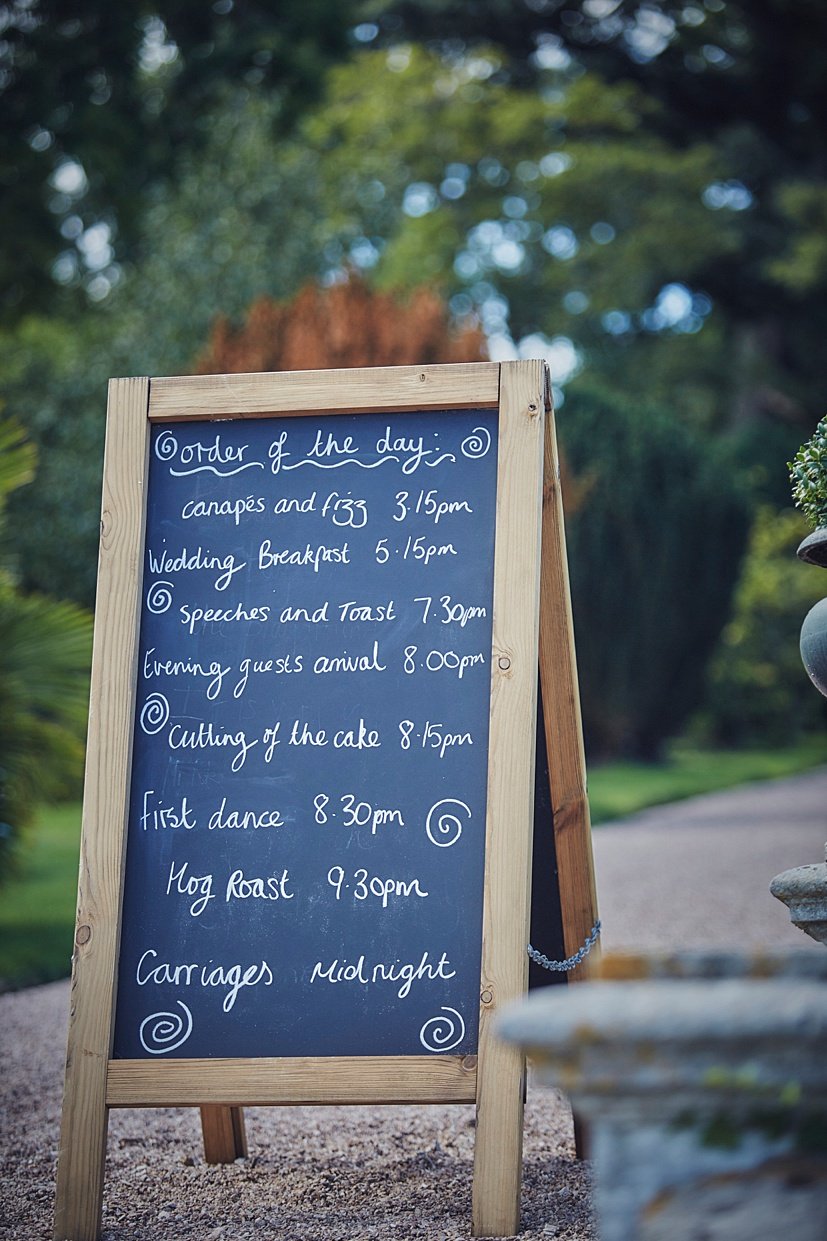 order of the day:
canapés and fizz 3.15pm
Wedding Breakfast 5.15pm
Speeches and Toast 7.30pm
Evening guests arrival 8.00pm
Cutting of the cake 8.15pm
first dance 8.30pm
Hog Roast 9.30pm
Carriages Midnight